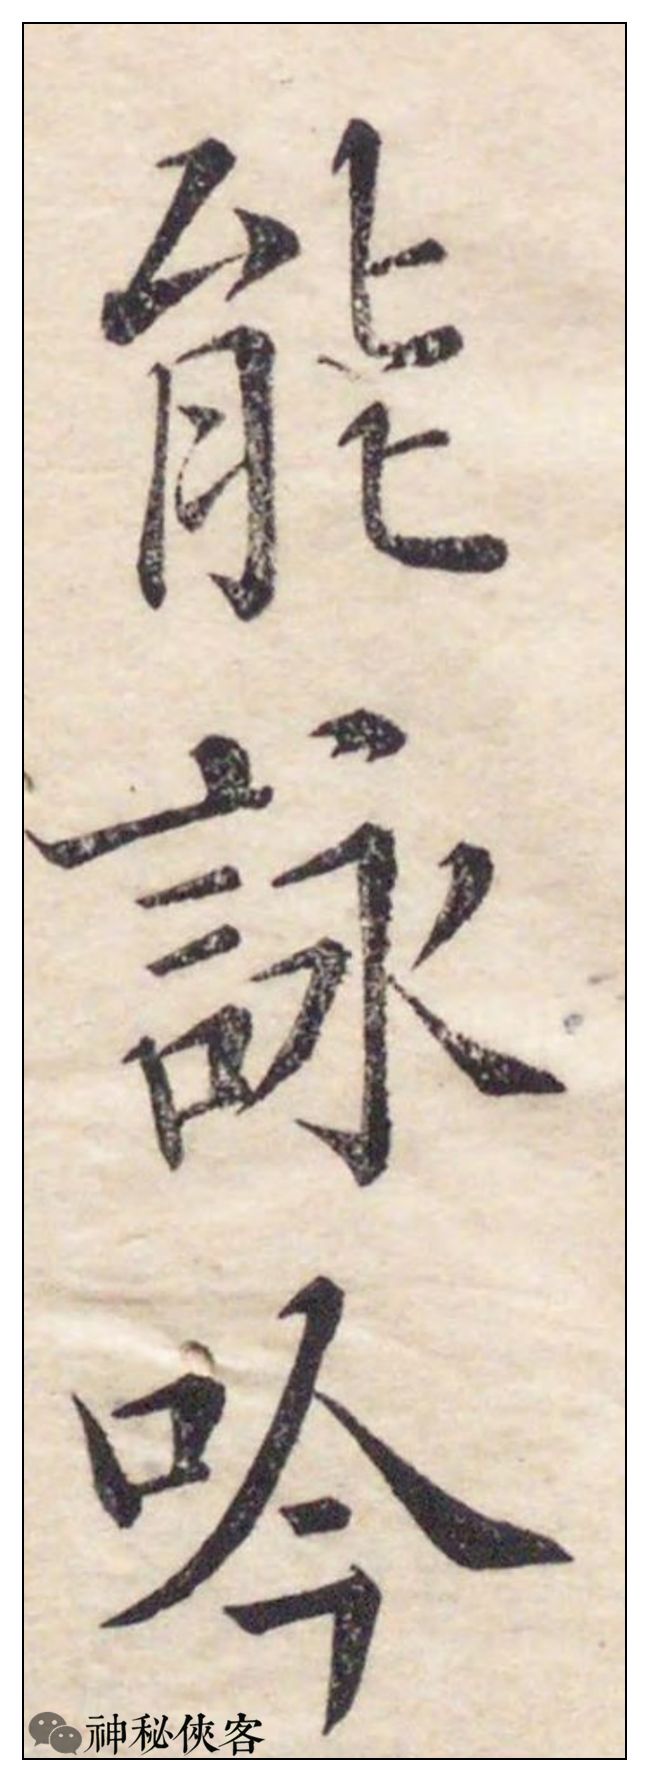 能詠吟
神秘俠客